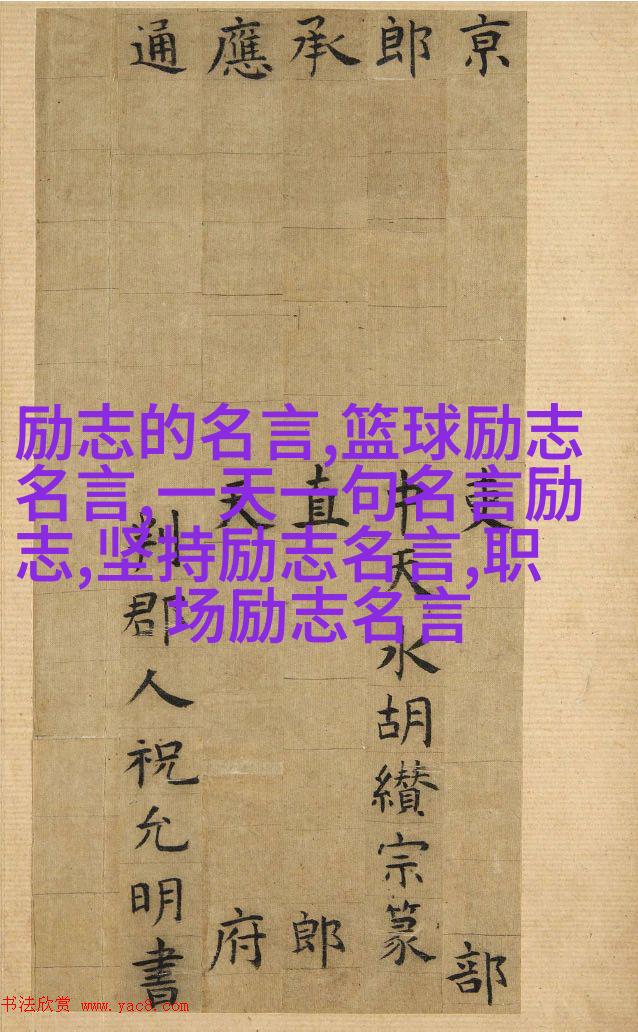 京吏部
郎中天水胡纘宗篆
承直郎
應天府
通判郡人祝允明書
励志的名言,篮球励志
名言,一天一句名言励
志,坚持励志名言,职
场励志名言
书法欣赏 www.yac8.com